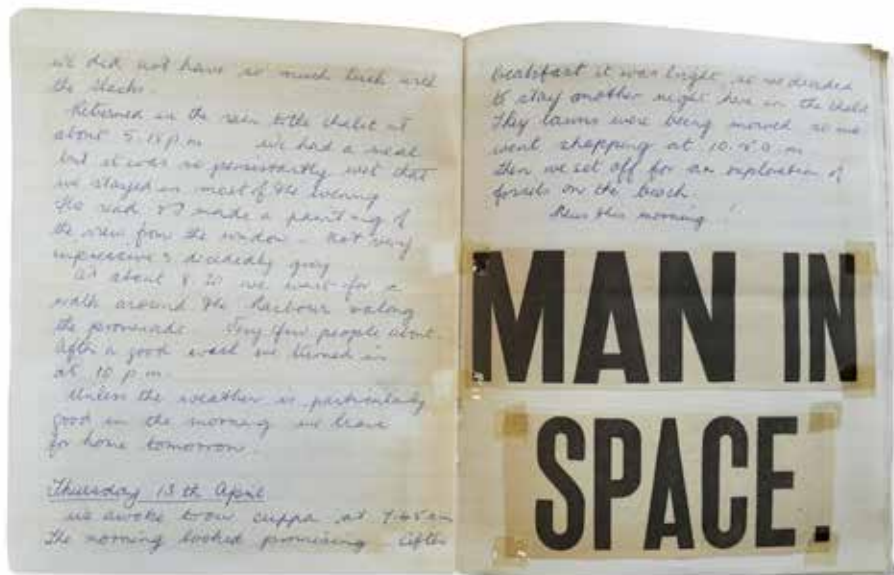 we did not have so much luck with
the slacks.
Returned in the rain to the chalet at
about 5.15 p.m we had a meal
but it was so persistantly wet that
we stayed in most of the evening
read & I made a painting of
the view from the window - not very
impressive & decidedly grey
At about 8 20 we went for a
walk around the harbour & along
the promenade Very few people about.
After a good walk we turned in
at 10 p.m.
Unless the weather is particularly
good in the morning we leave
for home tomorrow
Thursday 13th April
we awoke to our cuppa at 7.45 am
The morning looked promising After
breakfast it was bright, so we decided
to stay another night here in the chalet
They lawns were being mowed so we
went shopping at 10.50 m
then we set off for an exploration of
fossils on the beach.
News this morning !
MAN IN
SPACE.